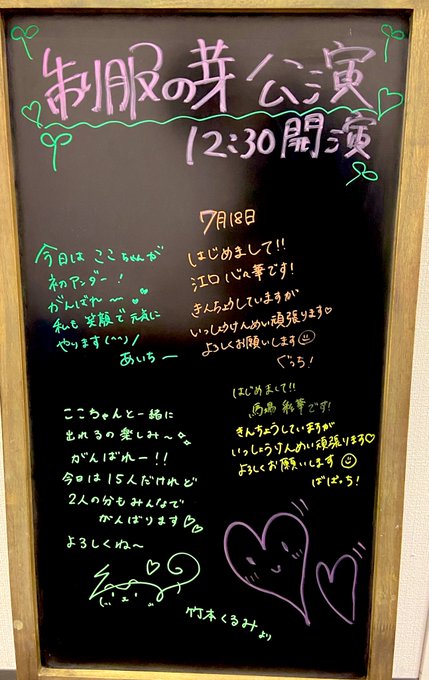 制服の芽公演
12:30開演
7月18日
今日は ここちゃんが
初アンダー!
がんばれ〜
私も 笑顔で元気に
やります(^^)/
あいちー
はじめまして!!
江口 心々華です!
きんちょうしていますが
いっしょうけんめい頑張ります♡
よろしくお願いします☺
ぐっち!
ここちゃんと一緒に
出れるの楽しみ〜
がんばれー!!
今日は15人だけれど
2人の分もみんなで
がんばります♡♡
よろしくね〜
竹本くるみより
はじめまして!!
馬場 彩華です!
きんちょうしていますが
いっしょうけんめい頑張ります♡
よろしくお願いします☺
ばばっち!